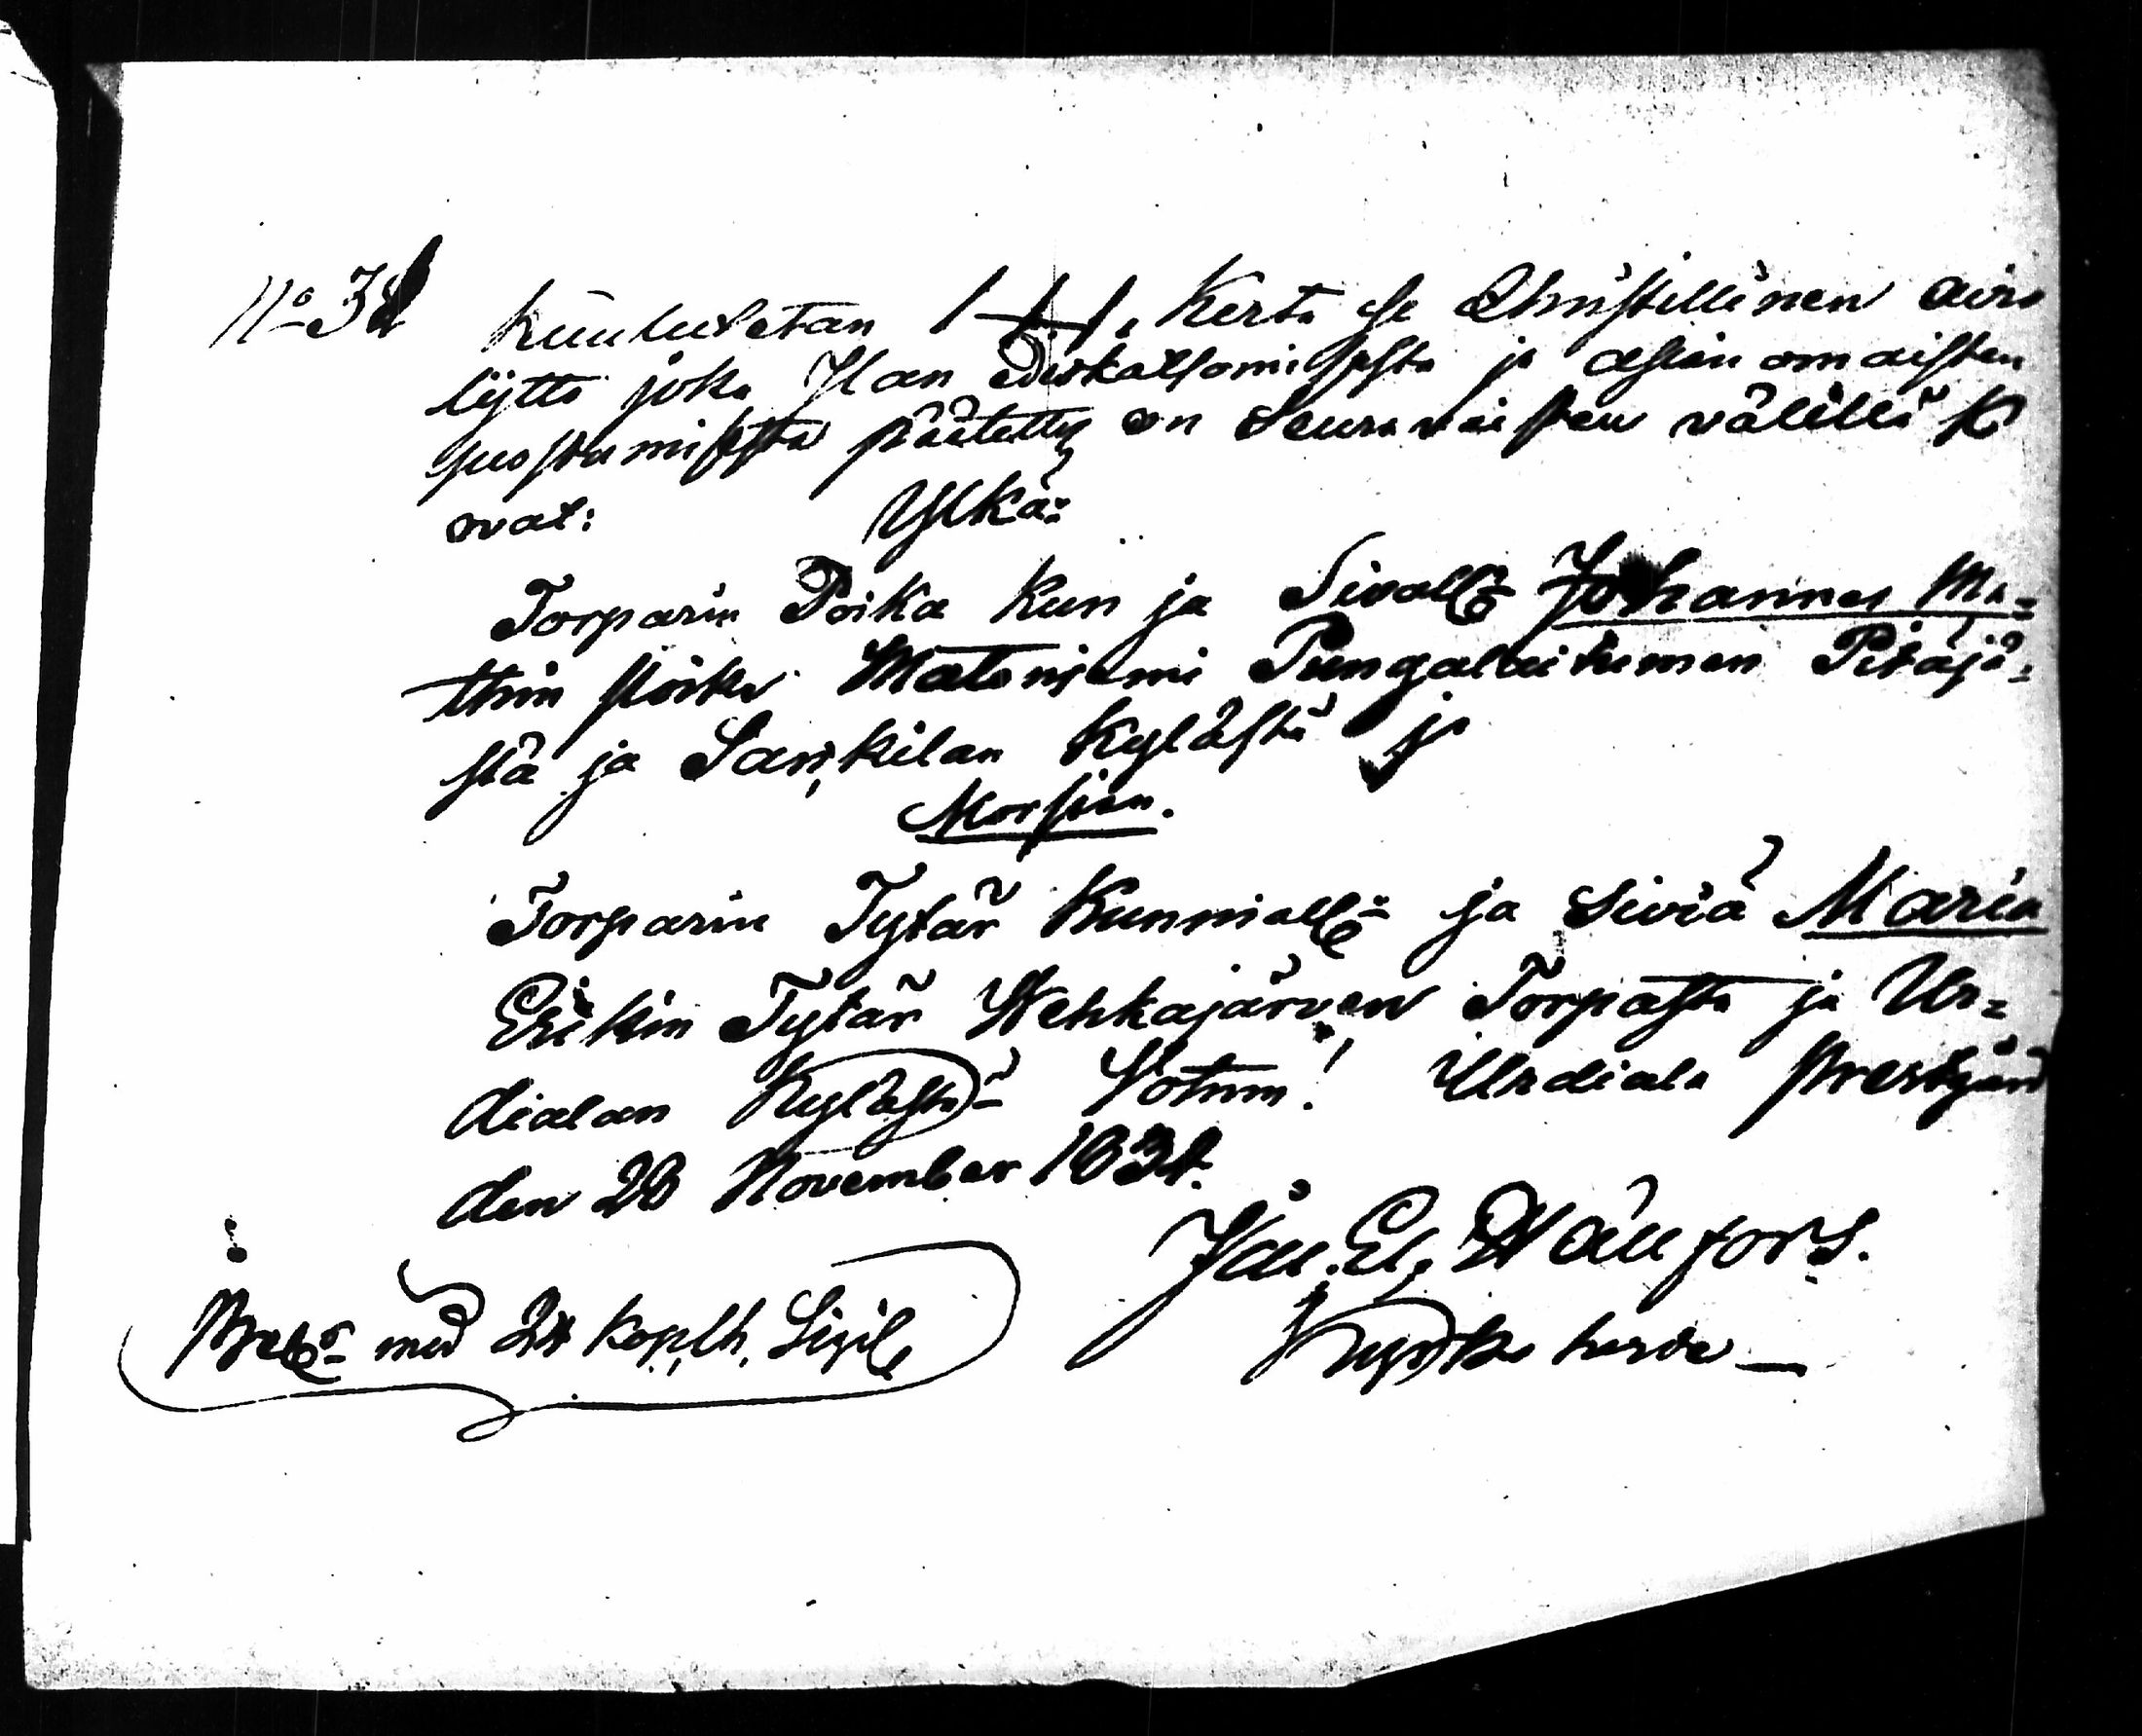 N:o 38 Kuulutetan 1 Kerta se Christillinen avio
liytto joka Ilan edeskatsomisesta ja asian omaisten
suostumisesta päätetty on seuravaisten välillä K
ovat: Ylkä:
Torparin Poika Kun ja Siväll:ä Johannes Ma=
thin poika Mataniemi Pungalaitumen Pitäjä=
stä ja Sankilan Kylästä ja
Morsian.
Torparin Tytär Kunniall:ä ja Siviä Maria
Erikin Tytär Wehkajärven Torpasta ja Ur=
dialan Kylästä Urdiala Prestgård
den 28 November 1838.
Jac. El. Wänfors.
Kyrko herde —
med 24 Kop, Sigil